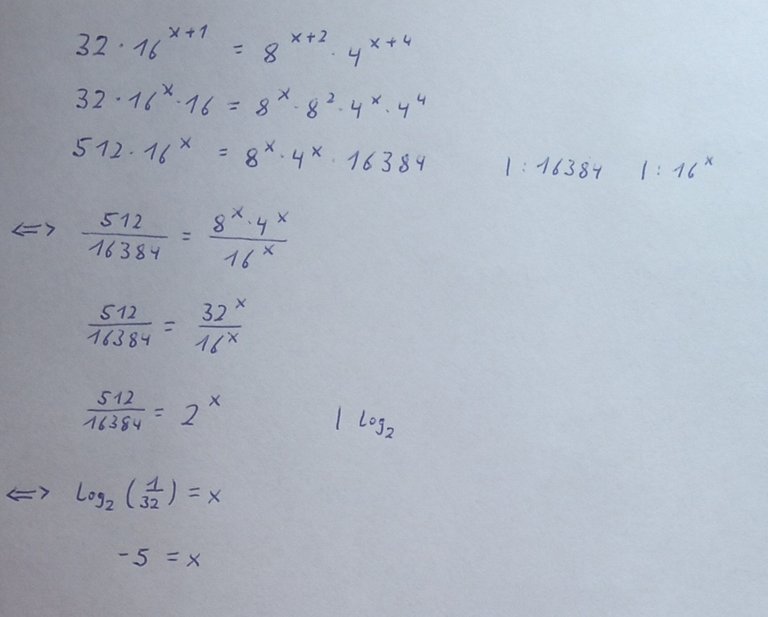 32 · 16^(x+1) = 8^(x+2) · 4^(x+4)
32 · 16^x · 16 = 8^x · 8^2 · 4^x · 4^4
512 · 16^x = 8^x · 4^x · 16384 | : 16384 | : 16^x
<=> 512/16384 = (8^x · 4^x)/16^x
512/16384 = 32^x/16^x
512/16384 = 2^x | log_2
<=> log_2 (1/32) = x
-5 = x